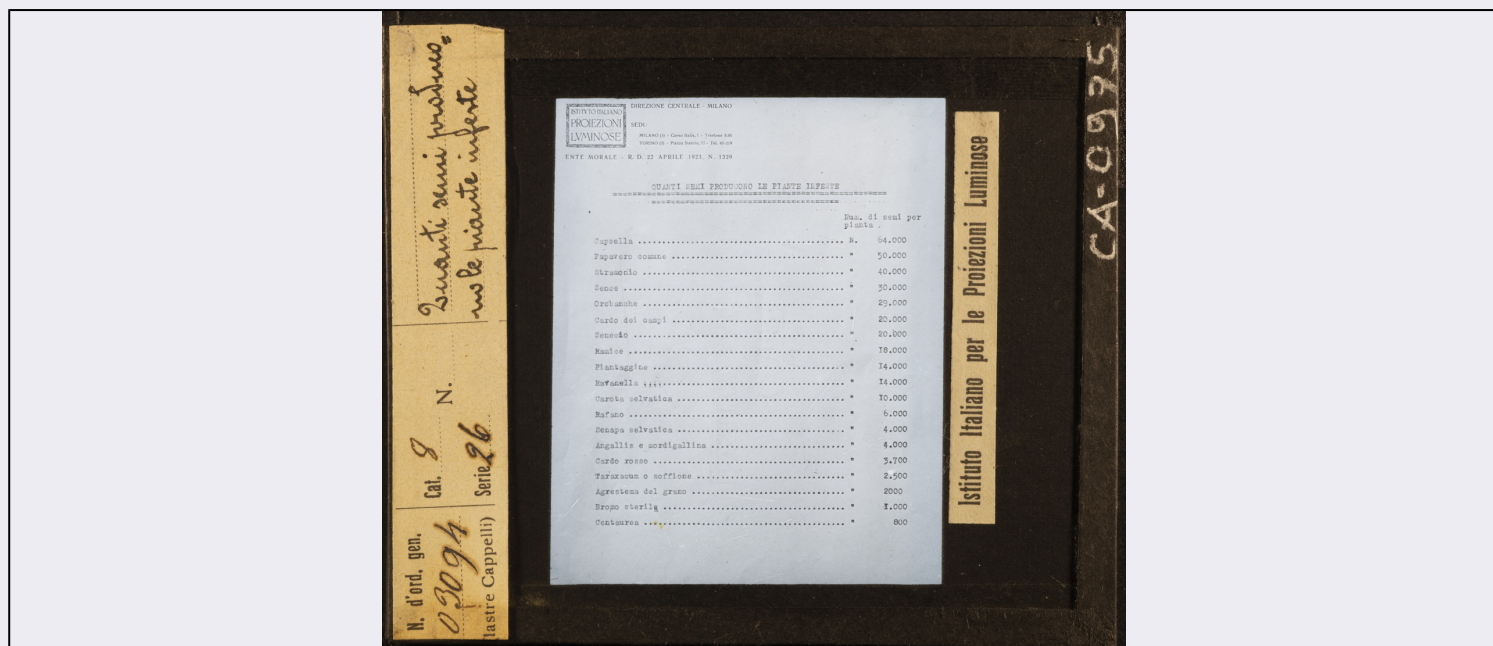 Quanti semi produco=
no le piante infeste
N.
Cat. 8
Serie 26
N. d'ord. gen.
03094
(lastre Cappelli)
ISTITVTO ITALIANO
PROIEZIONI
LVMINOSE
DIREZIONE CENTRALE - MILANO
SEDI:
MILANO (3) - Corso Italia, 1 - Telefono
TORINO (2) - Piazza
ENTE MORALE - R. D. 22 APRILE 1923, N. 1320
QUANTI SEMI PRODUCONO LE PIANTE INFESTE
Num. di semi per
pianta .
Capsella ........ N. 64.000
Papavero comune ........ " 50.000
Stramonio ........ " 40.000
........ " 30.000
Orobanche ........ " 29.000
Cardo dei campi ........ " 20.000
Senecio ........ " 20.000
Romice ........ " I8.000
Piantaggine ........ " I4.000
Ravanella ........ " I4.000
Carota selvatica ........ " I0.000
Rafano ........ " 6.000
Senapa selvatica ........ " 4.000
Angallis e mordigallina ........ " 4.000
Cardo rosso ........ " 3.700
Taraxacum o soffione ........ " 2.500
Agrostema del grano ........ " 2000
Bromo sterile ........ " I.000
Centaurea ........ " 800
Istituto Italiano per le Proiezioni Luminose
CA-0975